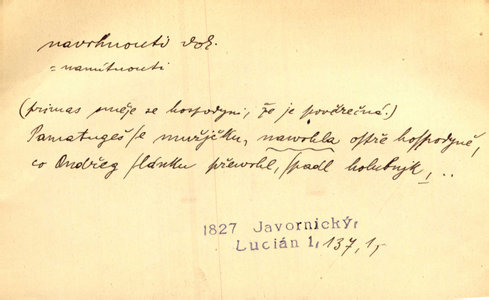 navrhnouti dok.
= namítnouti
(primas směje se hospodyni, že je pověrečná.)
Pamatugeš se mužjčku, nawrhla ostře hospodyně,
co Ondřeg slánku přewrhl, spadl holubnjk, ..
1827 Javornický,
Lucián 1, 137, 1,